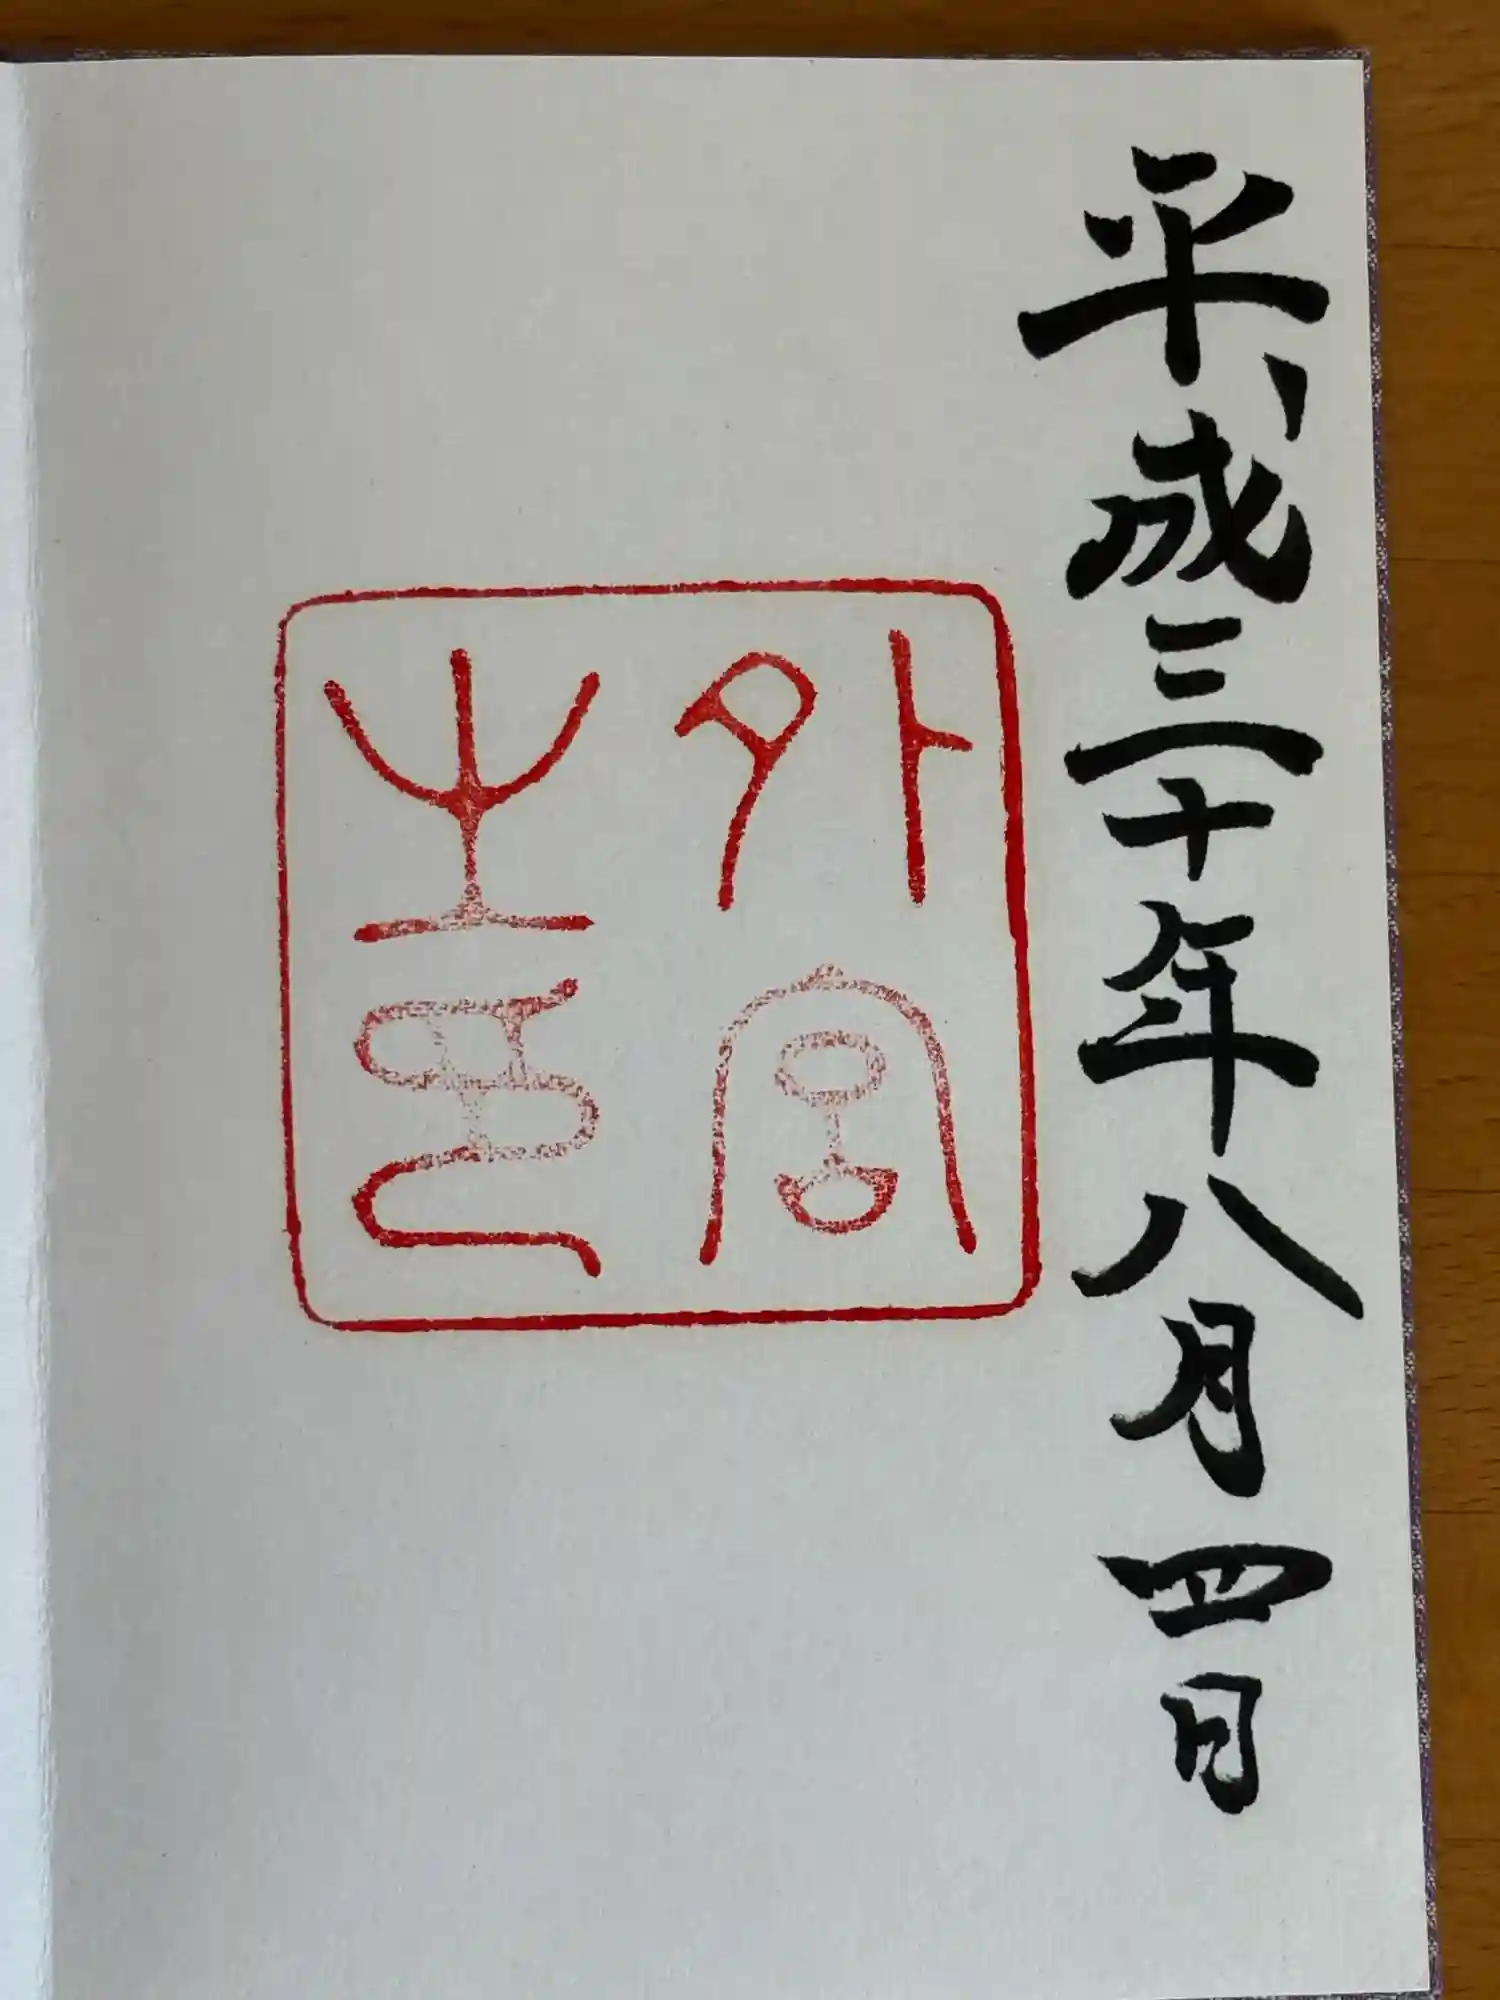 平成三十年八月四日
外宮
之印